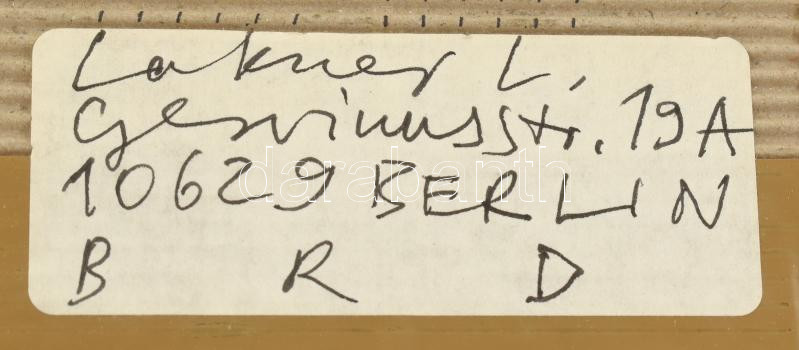 Lakner L.
Gervinusstr. 19A
10629 BERLIN
darabanth
B R D